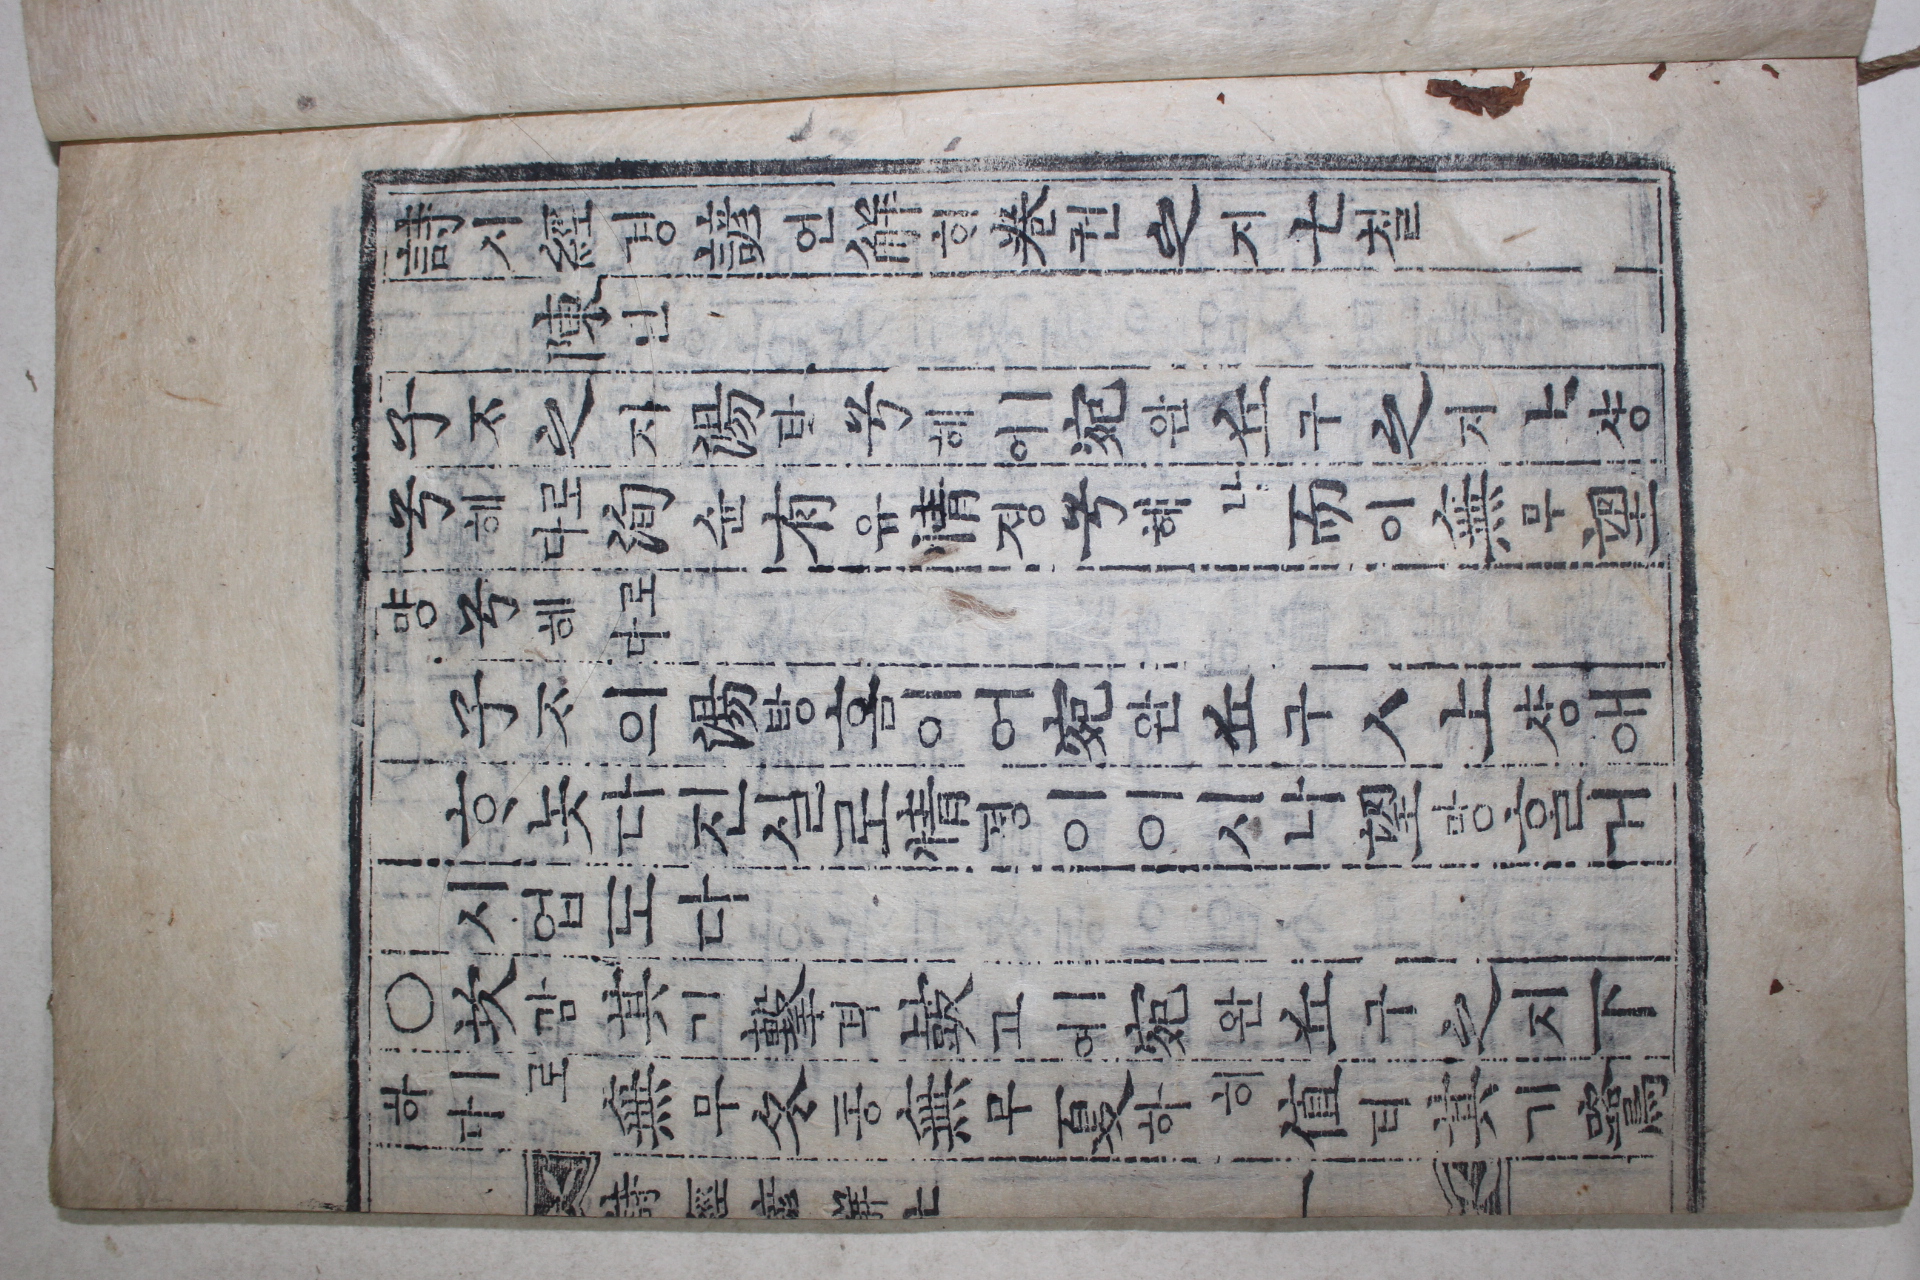 詩시經경諺언解ᄒᆡ卷권之지七칠
陳딘
子ᄌᆞ之지湯탕兮혜이宛완丘구之지上샹
兮혜로다洵슌有유情졍兮혜나而이無무望
망兮혜로다
子ᄌᆞ의湯탕홈이여宛완丘구ㅅ上샹애
ᄒᆞ놋다진실로情졍이이시나望망홀거
시업도다
○坎감其기擊격鼓고에宛완丘구之지下
하ㅣ로다無무冬동無무夏하히値티其기鷺
詩經諺解七 一